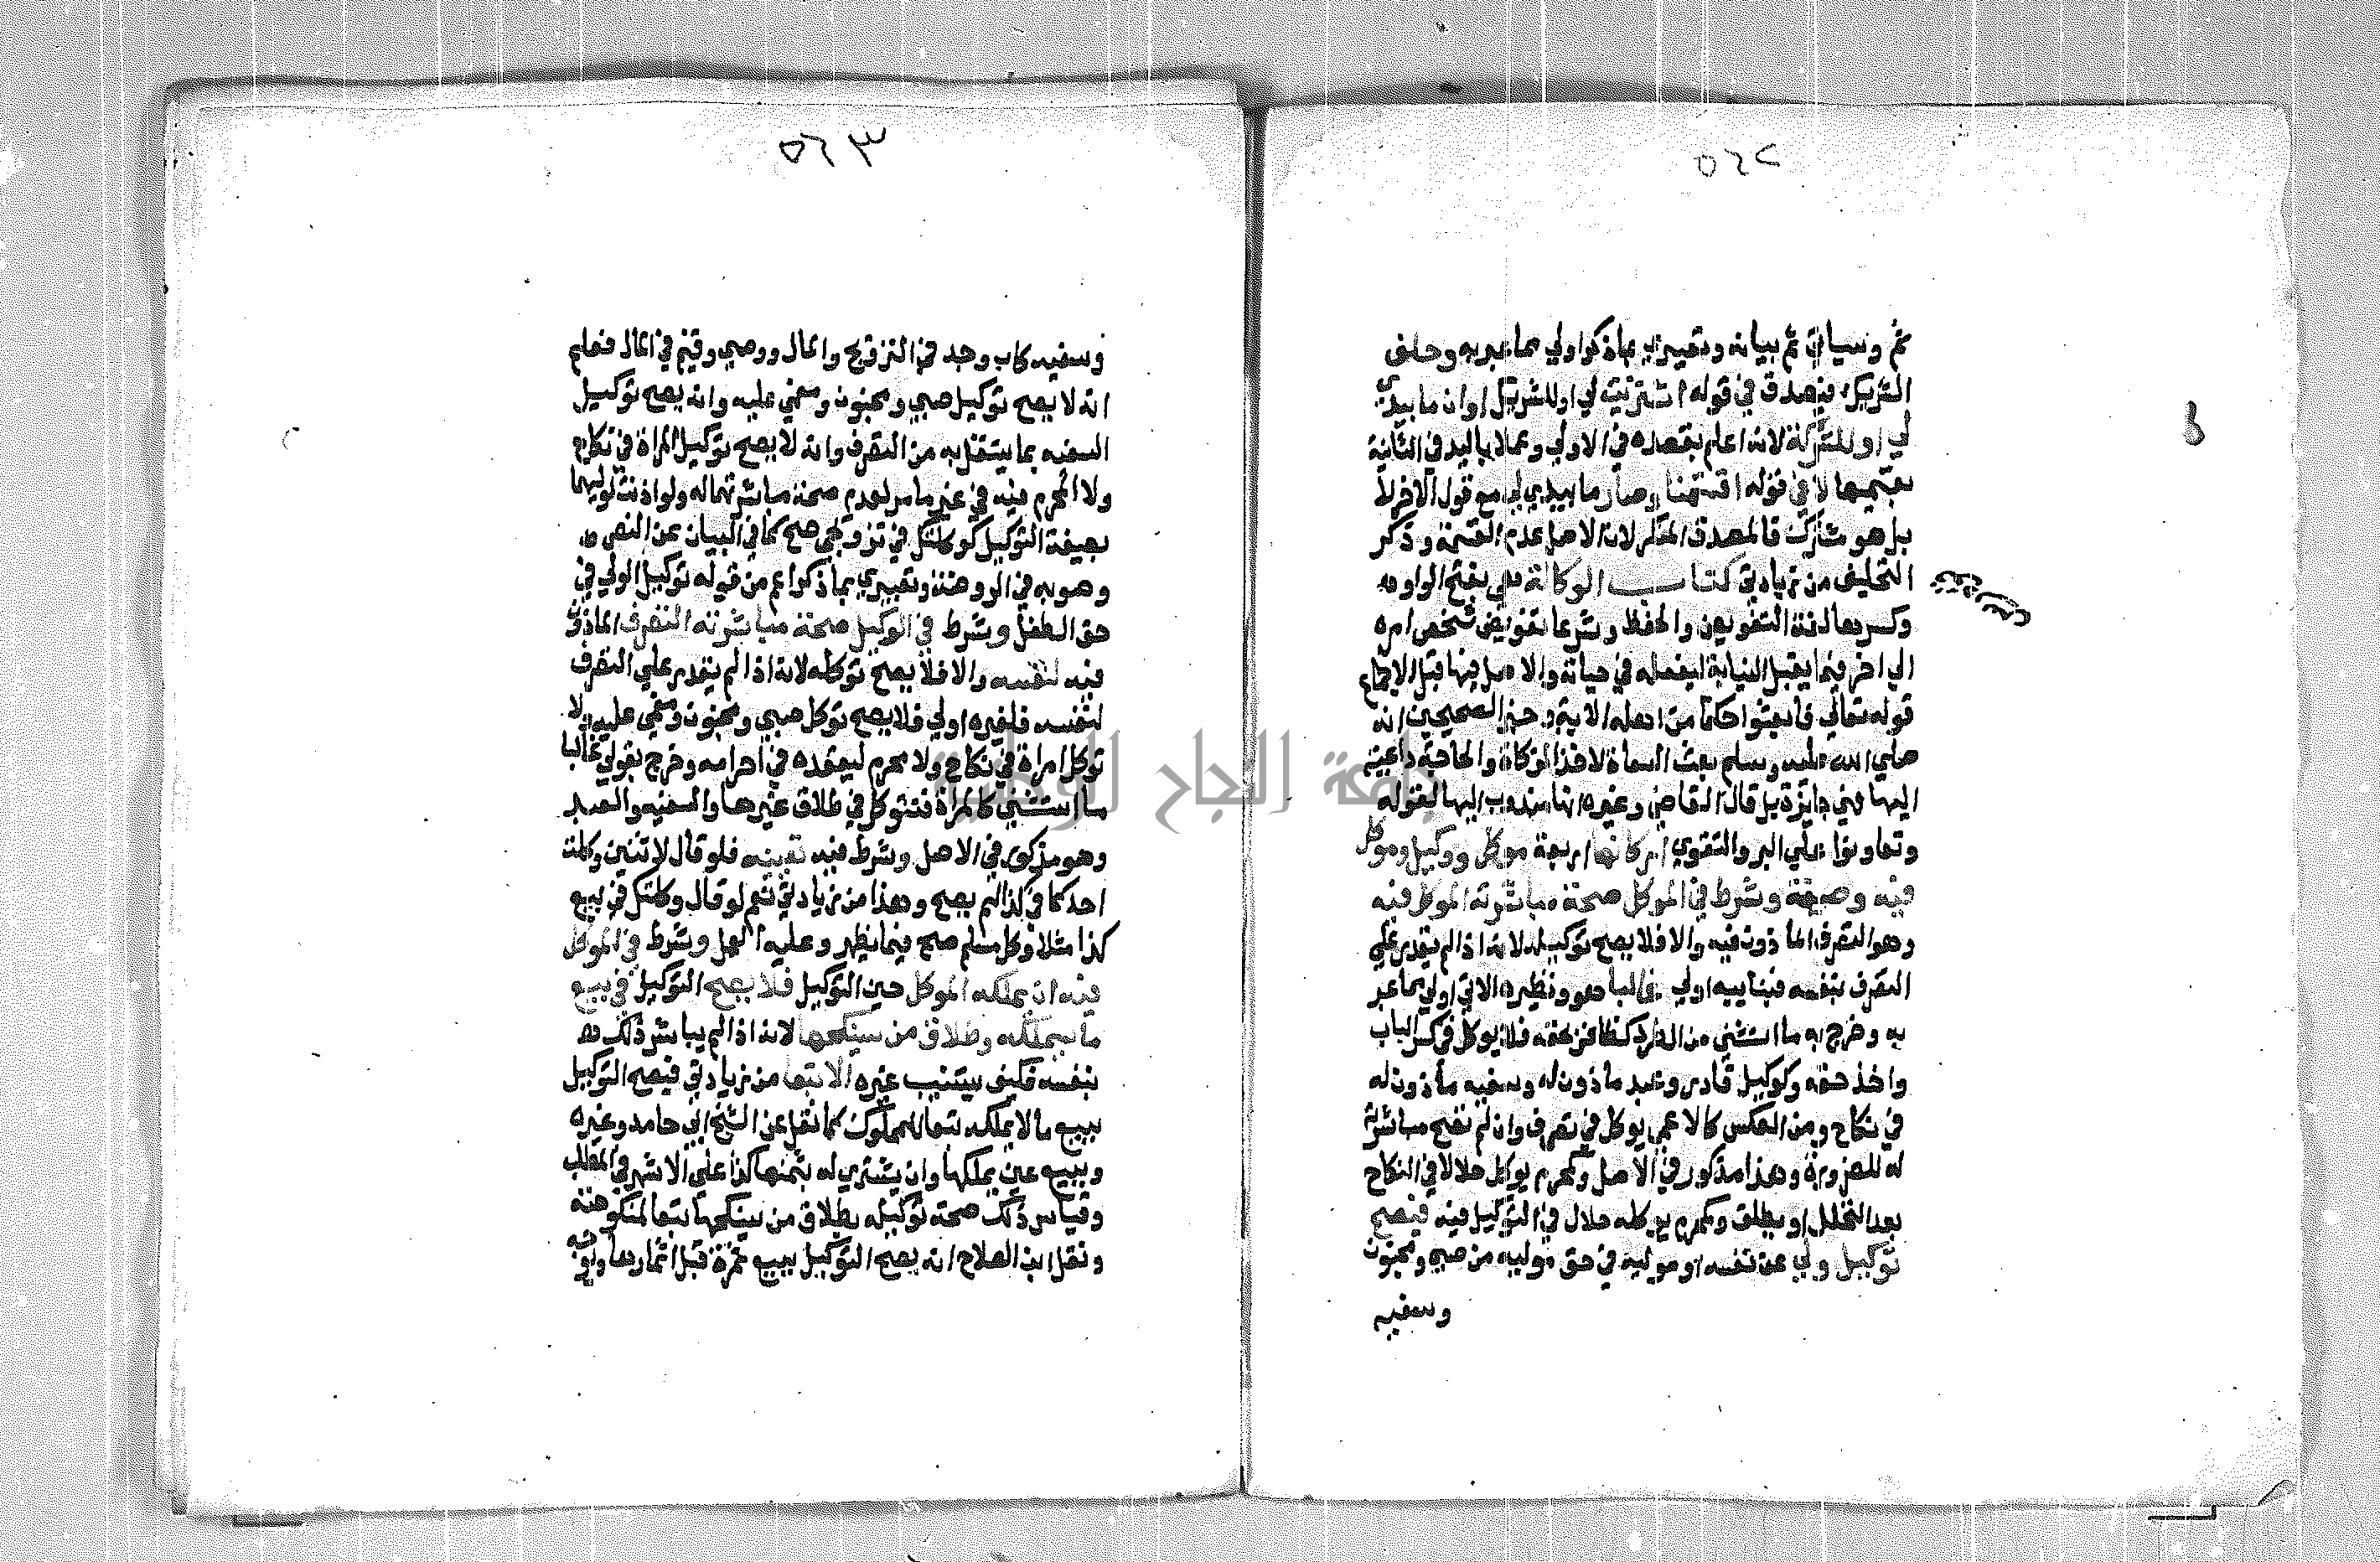 ٥٦٢
ثم وسياتي ثم بيانه وتعبيري بما ذكر اولي مما عبر به وحلف
الشريك فيصدق في قوله اشتريته لي او للشركة او ان ما بيدي
لي او للشركة لانه اعلم بقصده في الاولي وعملا باليد في الثانية
بقسميها لا في قوله اقتسمنا وصار ما بيدي لي مع قول الاخر لا
بل هو مشترك فالمصدق المنكر لان الاصل عدم القسمة وذكر
التحليف من زيادتي كتاب الوكالة هي بفتح الواو
وكسرها لغة التفويض والحفظ وشرعا تفويض شخص امره
الي اخر فيما يقبل النيابة ليفعله في حياته والاصل فيها قبل الاجماع
قوله تعالي فابعثوا حكما من اهله الاية وخبر الصحيحين انه
صلي الله عليه وسلم بعث السعاة لاخذ الزكاة والحاجة داعية
اليها فهي جايزة بل قال القاضي وغيره انها مندوب اليها لقوله
وتعاونوا علي البر والتقوي اركانها اربعة موكل ووكيل وموكل
فيه وصيغة وشرط في الموكل صحة مباشرته الموكل فيه
وهو التصرف الماذون فيه والا فلا يصح توكيله لانه اذا لم يقدر علي
التصرف بنفسه فبنايبه اولي غالبا هو ونظيره الاتي اولي مما عبر
به وخرج به ما استثني من الطرد كظافر بحقه فلا يوكل في كسر الباب
واخذ حقه وكوكيل قادر وعبد ماذون له وسفيه ماذون له
في نكاح ومن العكس كالاعمي يوكل في تصرف وان لم تصح مباشرته
له للضرورة وهذا مذكور في الاصل وكمحرم يوكل حلالا في النكاح
بعد التحلل او يطلق وكمحرم يوكله حلال في التوكيل فيه فيصح
توكيل ولي عن نفسه او موليه في حق موليه من صبي ومجنون
وسفيه
٥٦٣
وسفيه كاب وجد في التزويج والمال ووصي وقيم في المال فعلم
انه لا يصح توكيل صبي ومجنون ومغمي عليه وانه يصح توكيل
السفيه بما يستقل به من التصرف وانه لا يصح توكيل المراة في نكاح
ولا المحرم فيه في غير ما مر لعدم صحة مباشرتهما له ولو اذنت لوليها
بصيغة التوكيل كوكلتك في تزويجي صح كما في البيان عن النص
وصوبه في الروضة وتعبيري بما ذكر اعم من قوله توكيل الولي في
حق الطفل وشرط في الوكيل صحة مباشرته التصرف الماذون
فيه لنفسه والا فلا يصح توكله لانه اذا لم يقدر علي التصرف
لنفسه فلغيره اولي فلا يصح توكل صبي ومجنون ومغمي عليه ولا
توكل امراة في نكاح ولا محرم ليعقده في احرامه وخرج بقولي غالبا
ما استثني كالمراة فتتوكل في طلاق غيرها والسفيه والعبد
وهو مذكور في الاصل وشرط فيه تعيينه فلو قال لاثنين وكلت
احدكما في كذا لم يصح وهذا من زيادتي نعم لو قال وكلتك في بيع
كذا مثلا وكل مسلم صح فيما يظهر وعليه العمل وشرط في الموكل
فيه ان يملكه الموكل حين التوكيل فلا يصح التوكيل في بيع
ما سيملكه وطلاق من سينكحها لانه اذا لم يباشر ذلك
بنفسه فكيف يستنيب غيره الا تبعا من زيادتي فيصح التوكيل
ببيع ما لا يملكه تبعا للمملوك كما نقل عن الشيخ ابي حامد وغيره
وببيع عين يملكها وان يشتري له بثمنها كذا علي الاشهر في المطلب
وقياس ذلك صحة توكيله بطلاق من سينكحها تبعا لمنكوحته
ونقل ابن الصلاح انه يصح التوكيل ببيع ثمرة قبل اثمارها
جامعة النجاح الوطنية